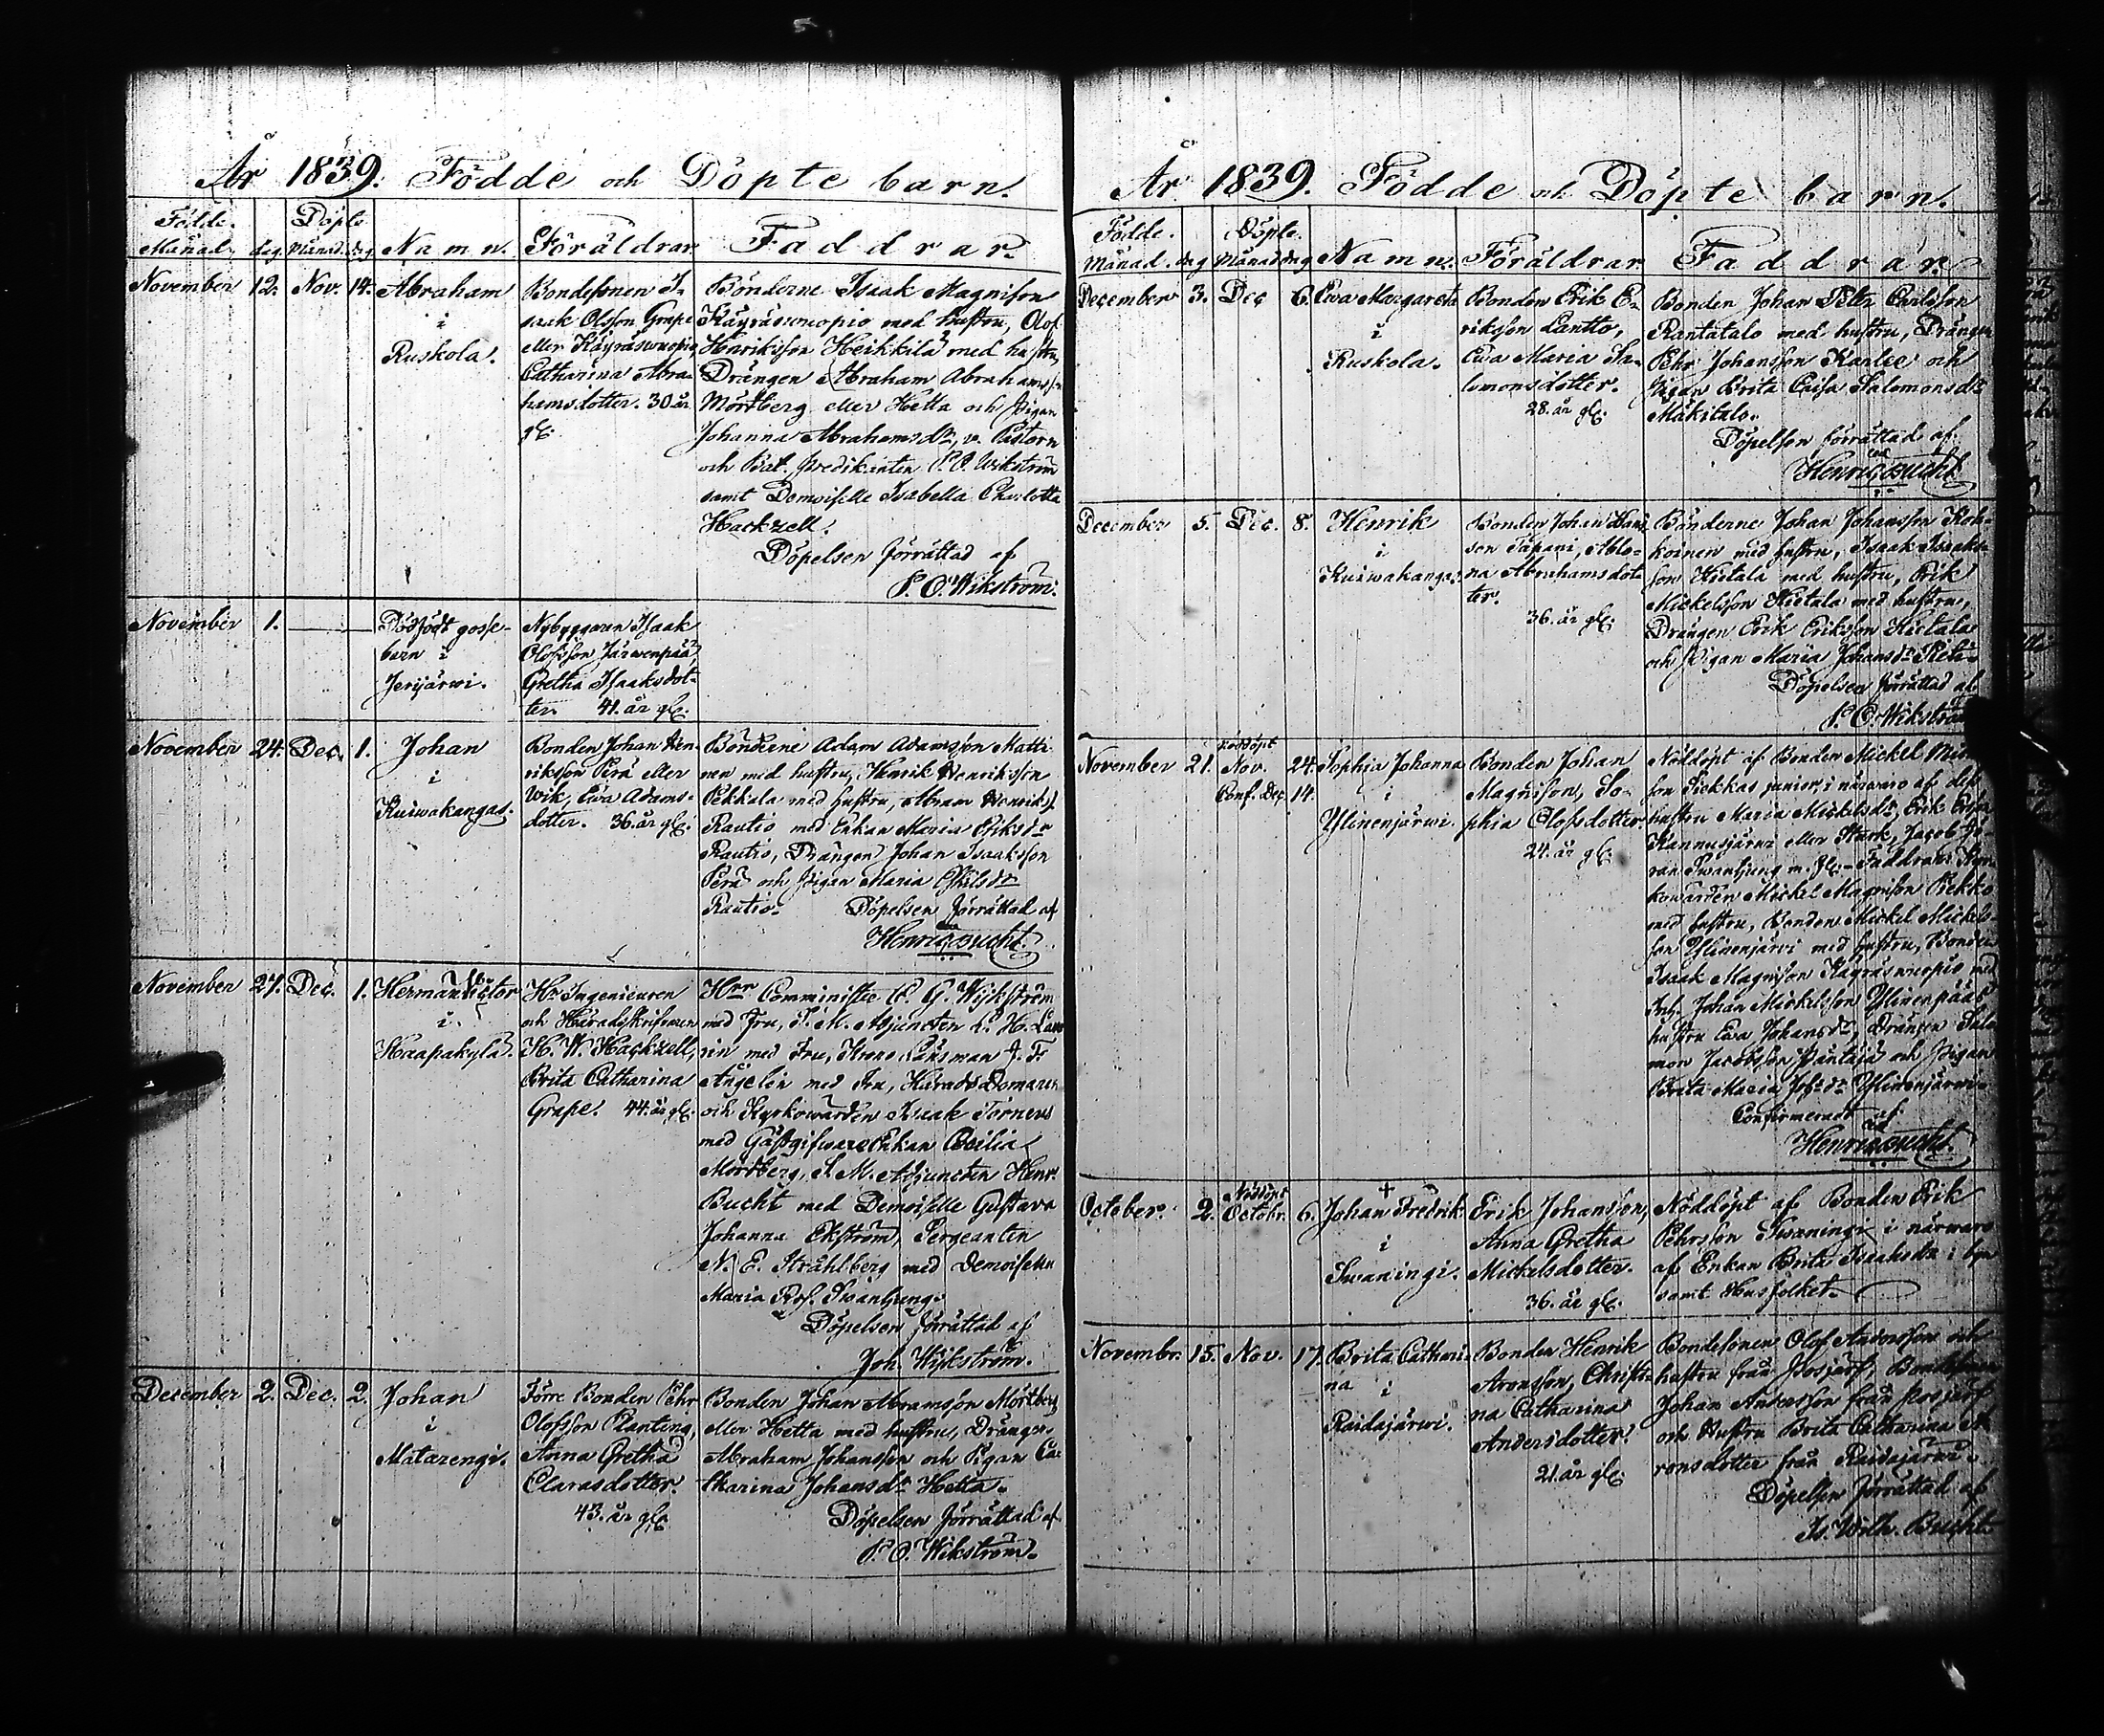 År 1839. Födde och Döpte barn.
Födde. Döpte
Månad. dag. Månad. dag Namn. Föräldrar Faddrar.
November 12. Nov. 14. Abraham
i
Ruskola.
Bondesonen I-
saak Olsson Grape
eller Käyräswuopio,
Catharina Abra-
hamsdotter. 30 år
gl.
Bönderne Isaak Magnisson
Käyräswuopio med hustru, Olof
Henriksson Heikkilä med hustru,
Drängen Abraham Abrahamsson
Mörtberg eller Hetta och Pigan
Johanna Abrahamsdr, v. Pastorn
och Bat. Predikanten P. O. Wikström
samt Demoiselle Isabella Charlotta
Hackzell.
Döpelsen förrättad af
P. O. Wikström.
November 1.
Dödfödt gosse-
barn i
Jerijärwi.
Nybyggaren Isaak
Olofsson Järwenpää
Gretha Isaaksdot-
ter. 41. år gl.
November 24. Dec. 1. Johan
i
Kuiwakangas.
Bonden Johan Hen-
riksson Perä eller
Wik, Ewa Adams-
dotter. 36. år gl.
Bönderne Adam Adamsson Matti-
nen med hustru, Henrik Henriksson
Pekkala med hustru, Abram Henrikss.
Rautio med Enkan Maria Eriksdr
Rautio, Drängen Johan Isaaksson
Perä och Pigan Maria Eskilsdr
Rautio. Döpelsen förrättad af
Henric Bucht.
November 27. Dec. 1. Herman Victor
i
Haapakylä.
Hr Ingenieuren
och Häradsskrifvaren
H. W. Hackzell,
Brita Catharina
Grape. 44. år gl.
Hrr Comminister C. G. Wijkström
med Fru, S. M. Adjuncten L. H.
med Fru, Krono Länsman J. F.
Ångelin med Fru, Härads Domaren
och Kyrkowärden Isaak Törneus
med Gästgifware Enkan Cecilia
Mörtberg, S. M. Adjuncten Henr.
Bucht med Demoiselle Gustava
Johanna Ekström, Sergeanten
N. E. Stråhlberg med Demoisellen
Maria Ros. Swanljung.
Döpelsen förrättad af
Joh. Wijkström.
December 2. Dec. 2. Johan
i
Matarengi.
Förre Bonden Pehr
Olofsson Planting,
Anna Gretha
Clarasdotter.
43. år gl.
Bonden Johan Abramsson Mörtberg
eller Hetta med hustru, Drängen
Abraham Johansson och Pigan Ca-
tharina Johansdr Hetta.
Döpelsen förrättad af
P. O. Wikström.
År 1839. Födde och Döpte barn.
Födde. Döpte.
Månad. dag Månad dag Namn. Föräldrar. Faddrar.
December 3. Dec 6. Ewa Margareta
i
Ruskola.
Bonden Erik E-
riksson Lantto,
Ewa Maria Sa-
lomonsdotter.
28. år gl.
Bonden Johan Petter Carlsson
Rantatalo med hustru, Drängen
Pehr Johansson Kanlee och
Pigan Brita Cajsa Salomonsdr
Mäkitalo.
Döpelsen förrättad af
Henric Bucht
December 5. Dec. 8. Henrik
i
Kuiwakangas.
Bonden Johan Hans-
son Tapani, Mag-
na Abrahamsdot-
ter.
36. år gl.
Bönderne Johan Johansson Koh-
koinen med hustru, Isaak Isaaks-
son Kietala med hustru, Erik
Mickelsson Kietala med hustru,
Drängen Erik Eriksson Kietala
och Pigan Maria Johansdr
Döpelsen förrättad af
P. O. Wikström
November 21. Nöddöpt
Nov. 24. Sophia Johanna
Conf. Dec. 14. i
Ylinenjärwi.
Bonden Johan
Magnisson, So-
phia Olofsdotter.
24. år gl.
Nöddöpt af Bonden Mickel
son Piekkas junior, i närwaro af dess
hustru Maria Mickelsdr, Erik
Kannusjärwi eller Stark, Jacob Gö-
ran Swanljung m. fl. Faddrar: Kyr-
kowärden Mickel Magnisson Piekko
med hustru, Bonden Mickel Mickels-
son Ylinenjärwi med hustru, Bonden
Isaak Magnisson Käyräswuopio med
Johan Mickelsson Ylinenpääs
hustru Ewa Johansdr, Drängen Salo-
mon Jacobsson Päntäjä och Pigan
Brita Maria Johsdr Ylinenjärwi.
Confirmeradt af
Henric Bucht.
October. 2. Nöddöpt
Octobr. 6. Johan Fredrik
i
Swaningi.
Erik Johansson,
Anna Gretha
Mickelsdotter.
36. år gl.
Nöddöpt af Bonden Erik
Pehrsson Swaningi i närwaro
af Enkan Brita Isaaksdr i byn
samt Husfolket.
Novembr. 15. Nov. 17. Brita Cathari-
na i
Raidajärwi.
Bonden Henrik
Aronsson, Christi-
na Catharina
Andersdotter.
21. år gl.
Bondesonen Olof Andersson och
hustru från Posjärf, Bondesonen
Johan Andersson från Posjärf
och Hustru Brita Catharina A-
ronsdotter från Raidajärwi.
Döpelsen förrättad af
Is. Wilh. Bucht